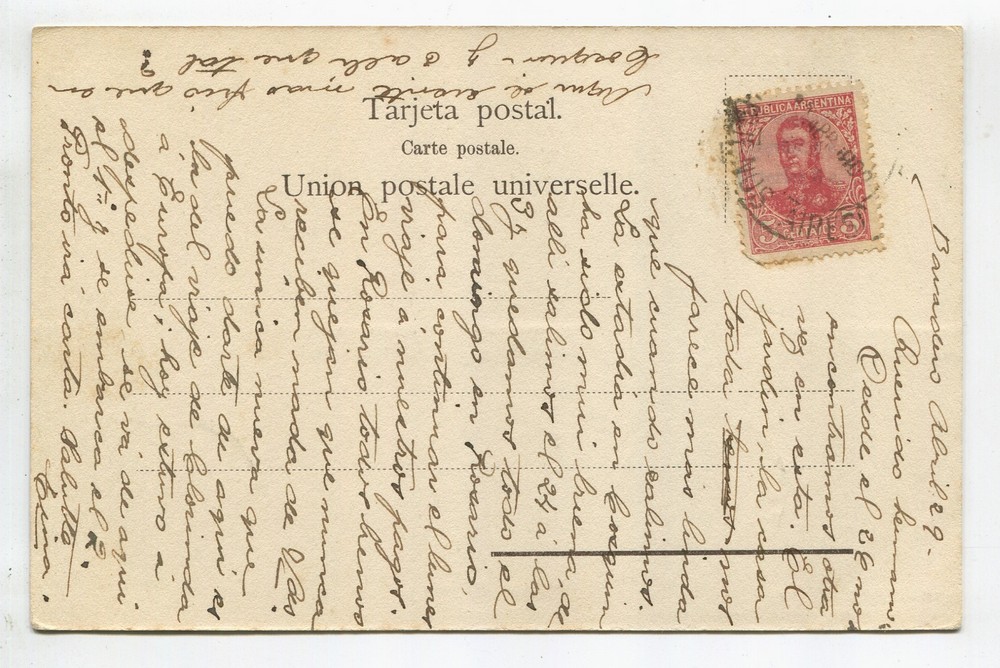 Tarjeta postal.
Carte postale.
Union postale universelle.
REPUBLICA ARGENTINA
5 CENTAVOS 5
Baradero Abril 29-
Querido
Desde el 26 nos
encontramos otra
vez en esta. El
jardin, la casa
toda nos
parece mas linda
que cuando salimos.
La estadia en Cosquin
ha sido mui buena, de
alli salimos el 24 á las
3 y quedamos todo el
domingo en Rosario,
para continuar el lunes
viaje á nuestros pagos.
En Rosario todos hemos
se quejan que nunca
reciben nada de Vds
La unica nueva que
puedo darte de aqui es
la del viaje de Clorinda
á Europa; hoy estuvo á
despedirse se va de aqui
el 1º y se embarca el 2.
Pronto irá carta. Saluda
Aqui se siente mas frio que en
Cosquin- y alli que tal
?